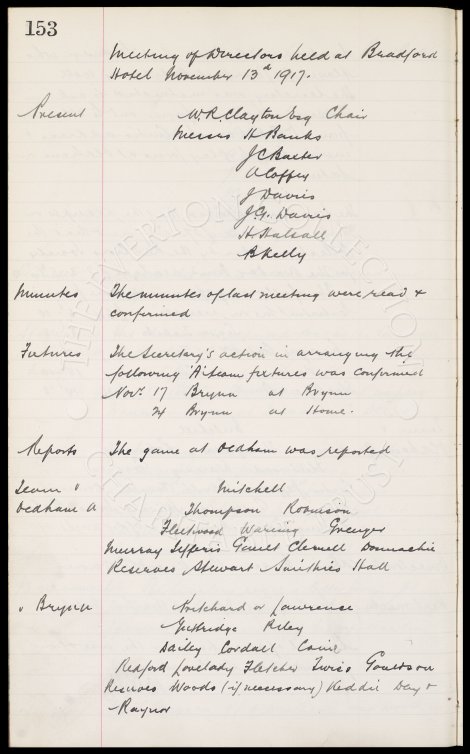 153
Meeting of Directors held at Bradford
Hotel November 13th 1917.
Present W.R. Clayton Esq Chair
Messrs H Banks
J C Baxter
A Coffey
J Davies
J.G. Davies
H Halsall
B Kelly
Minutes The minutes of last meeting were read &
confirmed
Fixtures The Secretary's action in arranging the
following 'A' team fixtures was confirmed
Novr. 17 Brynn at Brynn
24 Brynn at Home.
Reports The game at Oldham was reported
Team v Mitchell
Oldham A Thompson Robinson
Fleetwood Wareing Grenyer
Murray Jefferis Gault Clennell Donnachie
Reserves Stewart Smithies Hall
v Brynn Pritchard or Lawrence
Guttridge Riley
Dailey Cordall
Redford Lovelady Fletcher Twiss Goulson
Reserves Woods (if necessary) Keddie Day &
Raynor
THE EVERTON COLLECTION
CHARITABLE TRUST